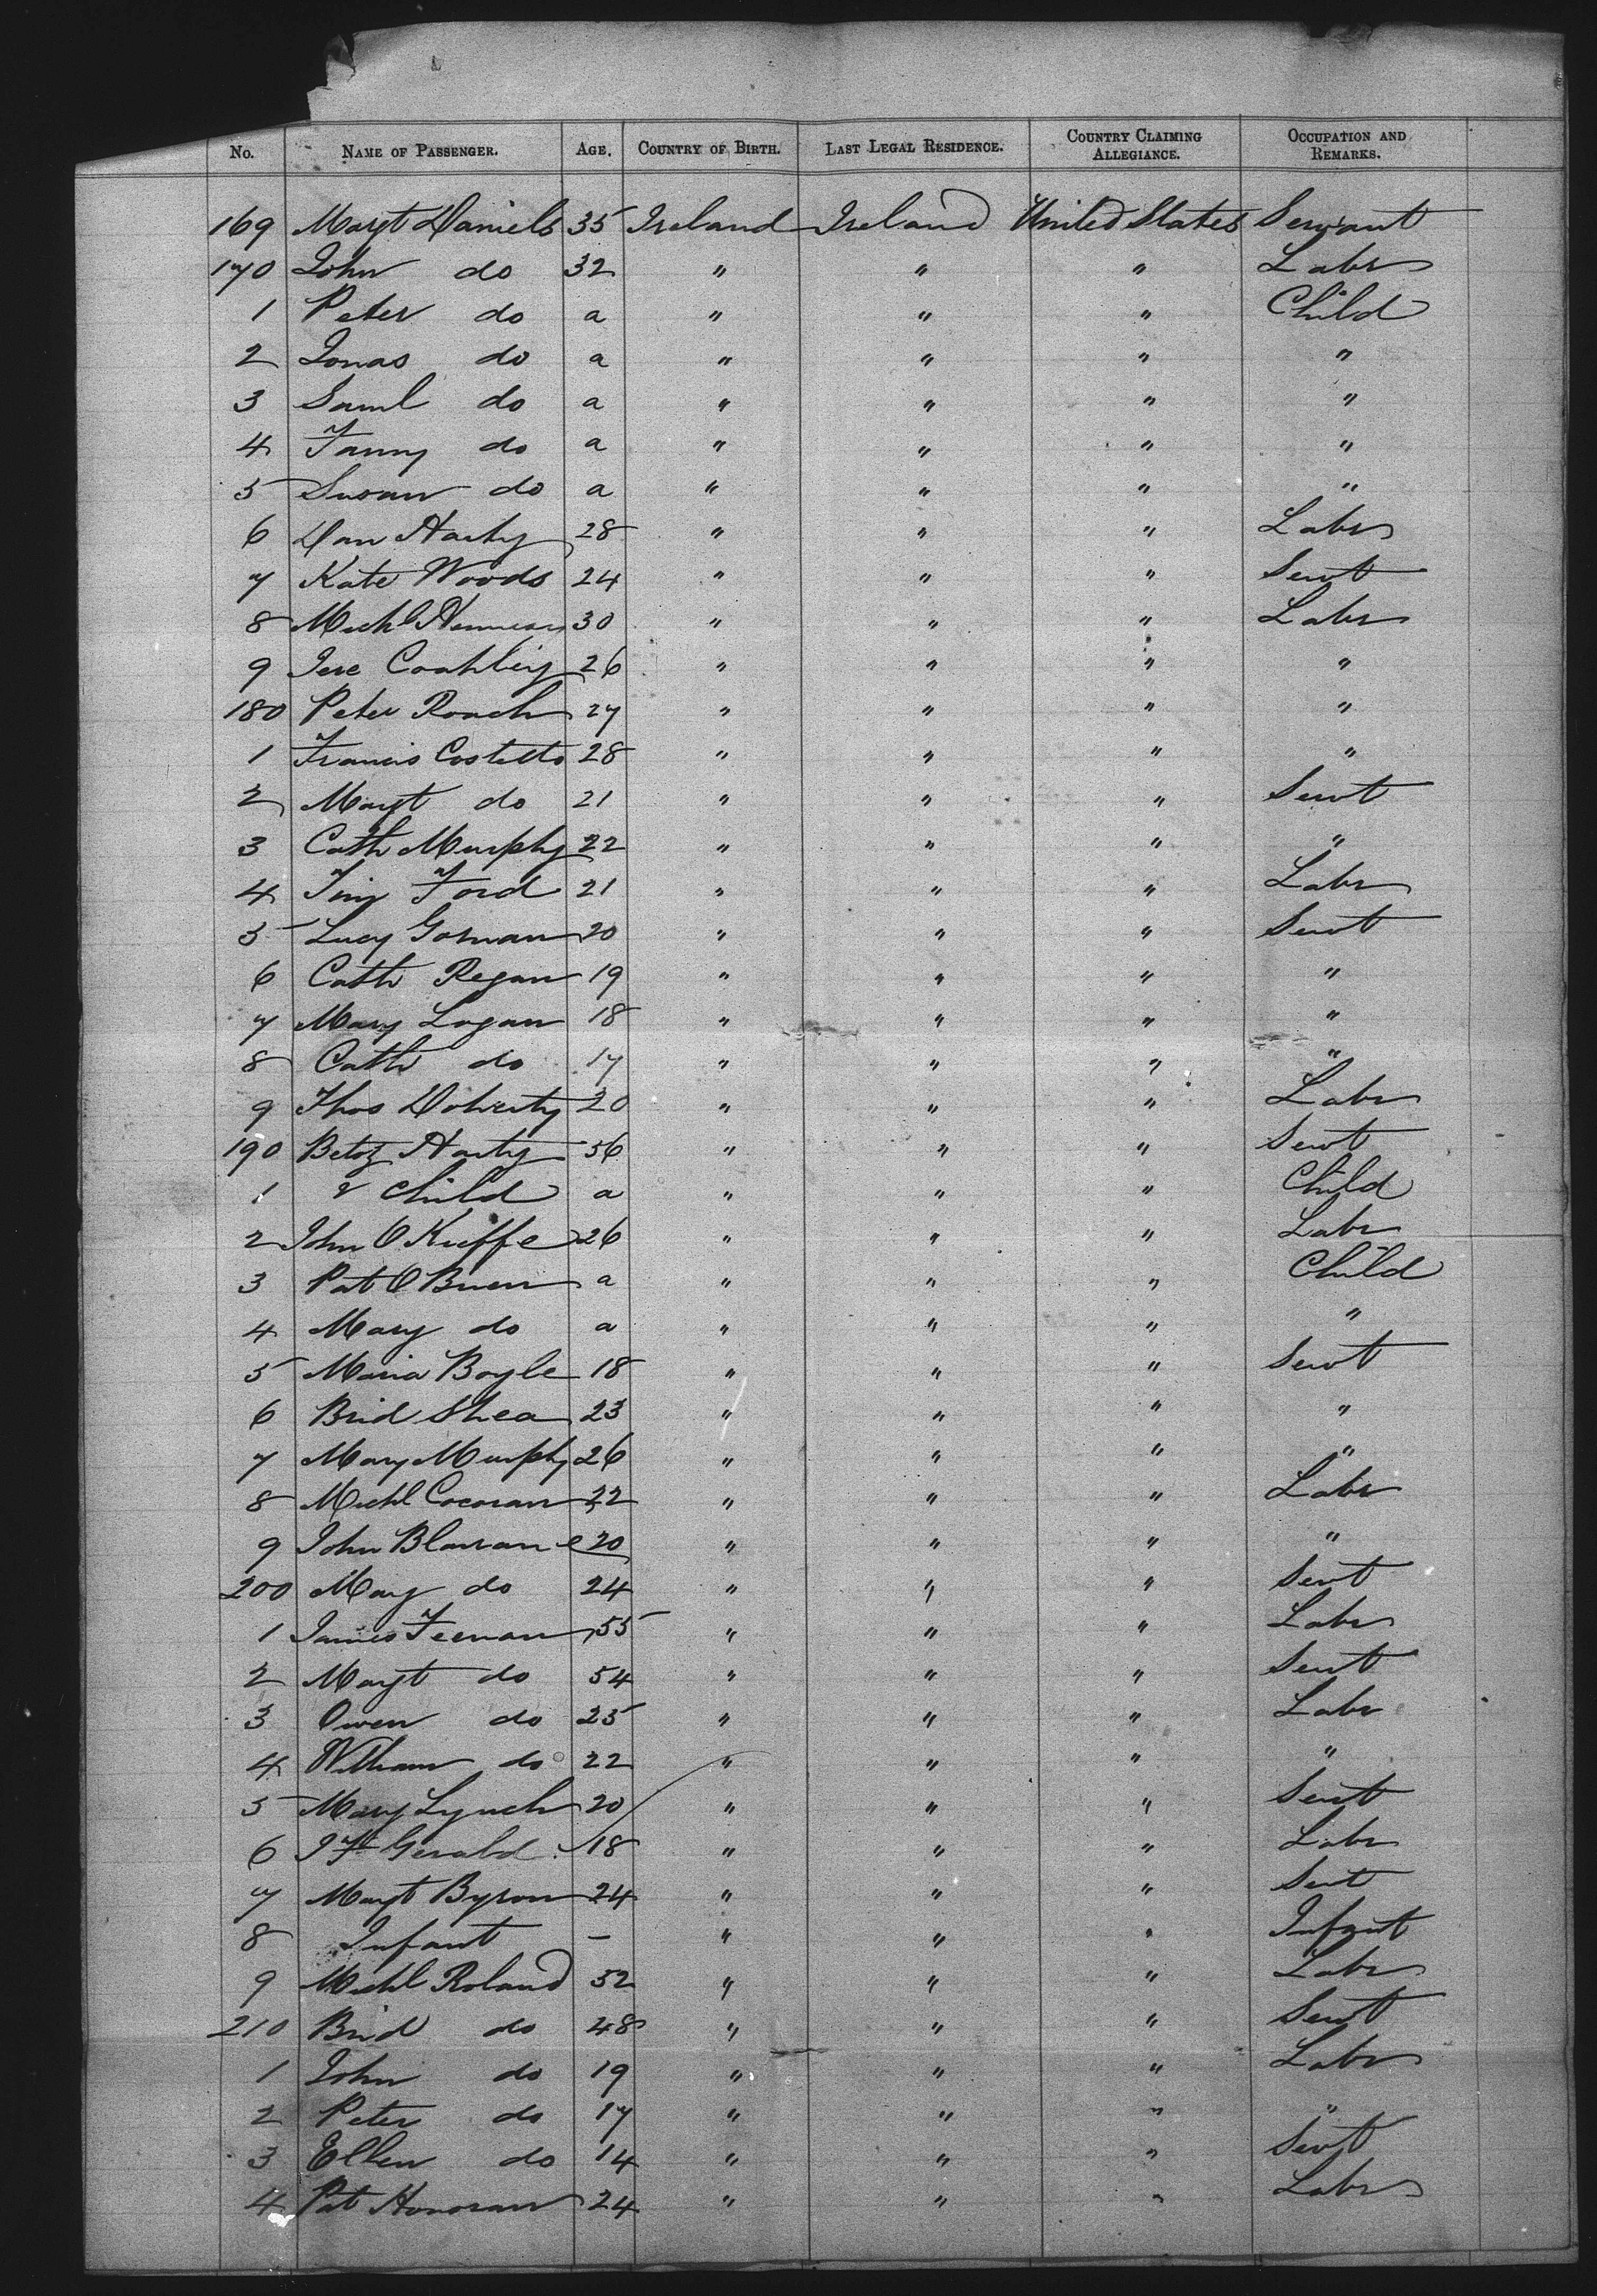 No. NAME OF PASSENGER. AGE. COUNTRY OF BIRTH. LAST LEGAL RESIDENCE. COUNTRY CLAIMING ALLEGIANCE. OCCUPATION AND REMARKS.
169 Margt Daniels 35 Ireland Ireland United States Servant
170 John do 32 " " " Labr
1 Peter do a " " " Child
2 Jonas do a " " " "
3 Saml do a " " " "
4 Fanny do a " " " "
5 Susan do a " " " "
6 Dan Harty 28 " " " Labr
7 Kate Woods 24 " " " Servt
8 Michl 30 " " " Labr
9 Jere 26 " " " "
180 Peter Roach 27 " " " "
1 Francis Costello 28 " " " "
2 Margt do 21 " " " Servt
3 Cath Murphy 22 " " " "
4 Tim Ford 21 " " " Labr
5 Lucy Gorman 20 " " " Servt
6 Cath Regan 19 " " " "
7 Mary Logan 18 " " " "
8 Cath do 17 " " " "
9 Thos Doherty 20 " " " Labr
190 Betsy Harty 56 " " " Servt
1 & Child a " " " Child
2 John O Kieffe 26 " " " Labr
3 Pat O Brien a " " " Child
4 Mary do a " " " "
5 Maria Boyle 18 " " " Servt
6 Brid Shea 23 " " " "
7 Mary Murphy 26 " " " "
8 Michl Cocoran 22 " " " Labr
9 John 20 " " " "
200 Mary do 24 " " " Servt
1 James Feenan 55 " " " Labr
2 Margt do 54 " " " Servt
3 Owen do 25 " " " Labr
4 William do 22 " " " "
5 Mary Lynch 20 " " " Servt
6 J F Gerald 18 " " " Labr
7 Margt Byron 24 " " " Servt
8 Infant – " " " Infant
9 Michl Roland 52 " " " Labr
210 Brid do 48 " " " Servt
1 John do 19 " " " Labr
2 Peter do 17 " " " "
3 Ellen do 14 " " " Servt
4 Pat Honoran 24 " " " Labr